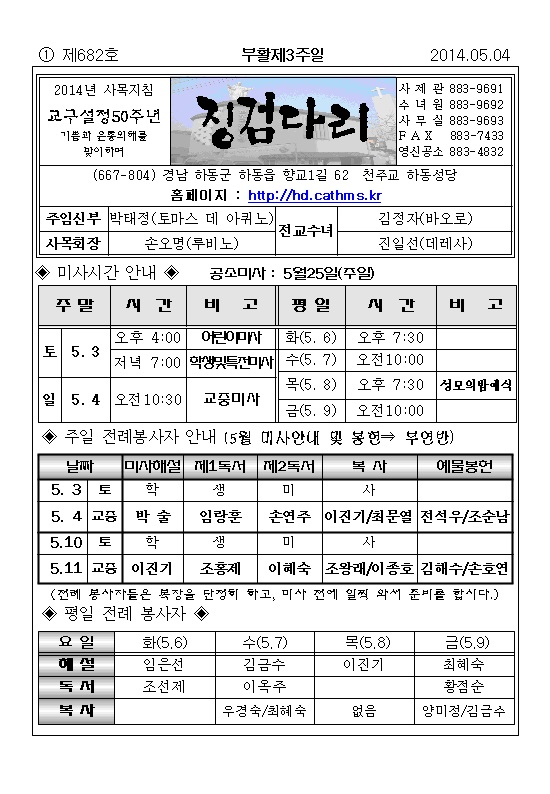 ① 제682호 부활제3주일 2014.05.04
2014년 사목지침
교구설정50주년
기쁨과 은총의해를
맞이하며
징검다리
사 제 관 883-9691
수 녀 원 883-9692
사 무 실 883-9693
F A X 883-7433
영신공소 883-4832
(667-804) 경남 하동군 하동읍 향교1길 62 천주교 하동성당
홈페이지 : http://hd.cathms.kr
주임신부 박태정(토마스 데 아퀴노) 전교수녀 김정자(바오로)
사목회장 손오명(루비노) 진일선(데레사)
◈ 미사시간 안내 ◈ 공소미사 : 5월25일(주일)
주 말 시 간 비 고 평 일 시 간 비 고
토 5. 3 오후 4:00 어린이미사 화(5. 6) 오후 7:30
저녁 7:00 학생및특전미사 수(5. 7) 오전10:00
일 5. 4 오전10:30 교중미사 목(5. 8) 오후 7:30 성모의밤예식
금(5. 9) 오전10:00
◈ 주일 전례봉사자 안내 (5월 미사안내 및 봉헌⇒ 부연반)
날짜 미사해설 제1독서 제2독서 복 사 예물봉헌
5. 3 토 학 생 미 사
5. 4 교중 박 술 임랑훈 손연주 이진기/최문열 전석우/조순남
5.10 토 학 생 미 사
5.11 교중 이진기 조홍제 이혜숙 조왕래/이종호 김해수/손호연
(전례 봉사자들은 복장을 단정히 하고, 미사 전에 일찍 와서 준비를 합시다.)
◈ 평일 전례 봉사자 ◈
요 일 화(5.6) 수(5.7) 목(5.8) 금(5.9)
해 설 임은선 김금수 이진기 최혜숙
독 서 조선제 이옥주 황점순
복 사 우경숙/최혜숙 없음 양미정/김금수